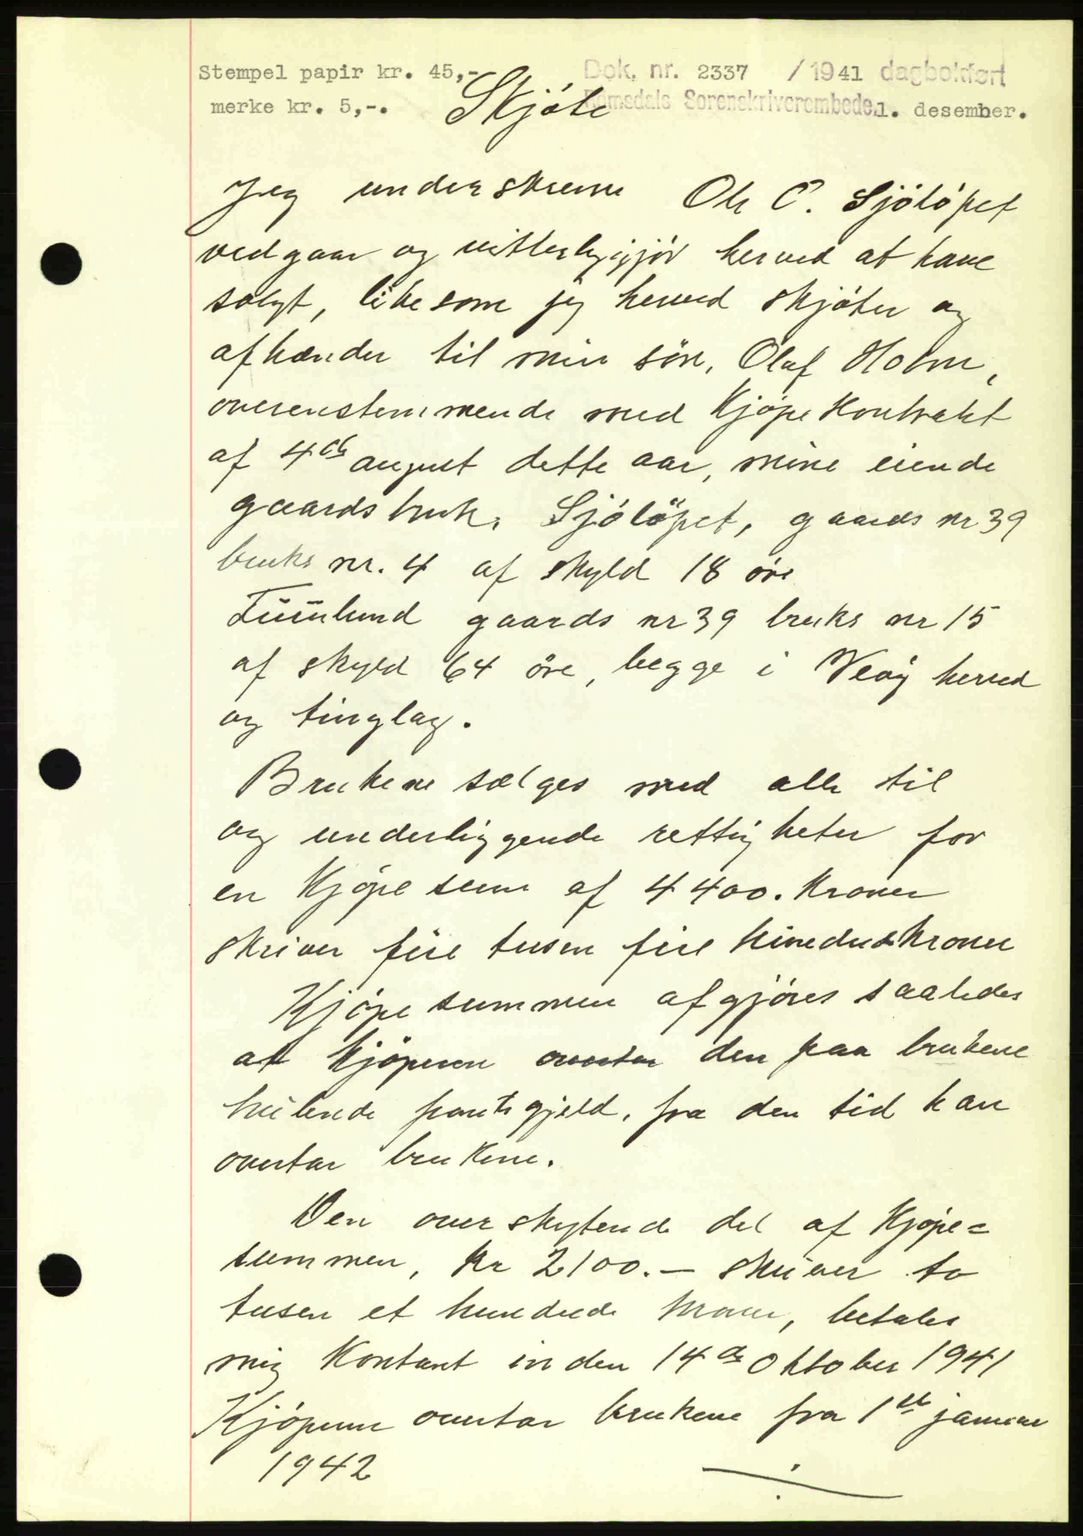 Stempel papir kr. 45,- Dok. nr. 2337 /1941 dagbokført
merke kr. 5,-. Romsdals Sorenskriverembede 1. desember.
Skjøte
Jeg underskrevne Ole O. Sjøløpet
vedgaar og vitterliggjør herved at have
solgt, likesom jeg herved skjøter og
afhænder til min søn, Olaf Holm,
overenstemmende med Kjøpekontrakt
af 4de august dette aar, mine eiende
gaardsbruk, Sjøløpet, gaards nr 39
bruks nr. 4 af skyld 18 øre
gaards nr 39 bruks nr 15
af skyld 64 øre, begge i Veøy herred
og tinglag.
Brukene sælges med alle til
og underliggende rettigheter for
en Kjøpesum af 4400. Kroner
skriver fire tusen fire hundredekroner
Kjøpesummen afgjøres saaledes
at Kjøperen overtar den paa brukene
hvilende pantegjeld, fra den tid han
overtar brukene.
Den overskytende del af Kjøpe=
summen, Kr 2100.— skriver to
tusen et hundrede kroner, betales
mig Kontant inden 14de Oktober 1941
Kjøperen overtar brukene fra 1ste januar
1942